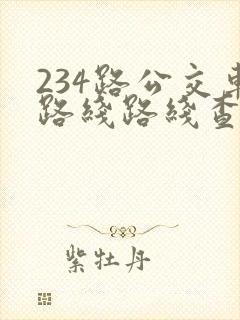 234路公交車
路綫路綫查
紫牡丹